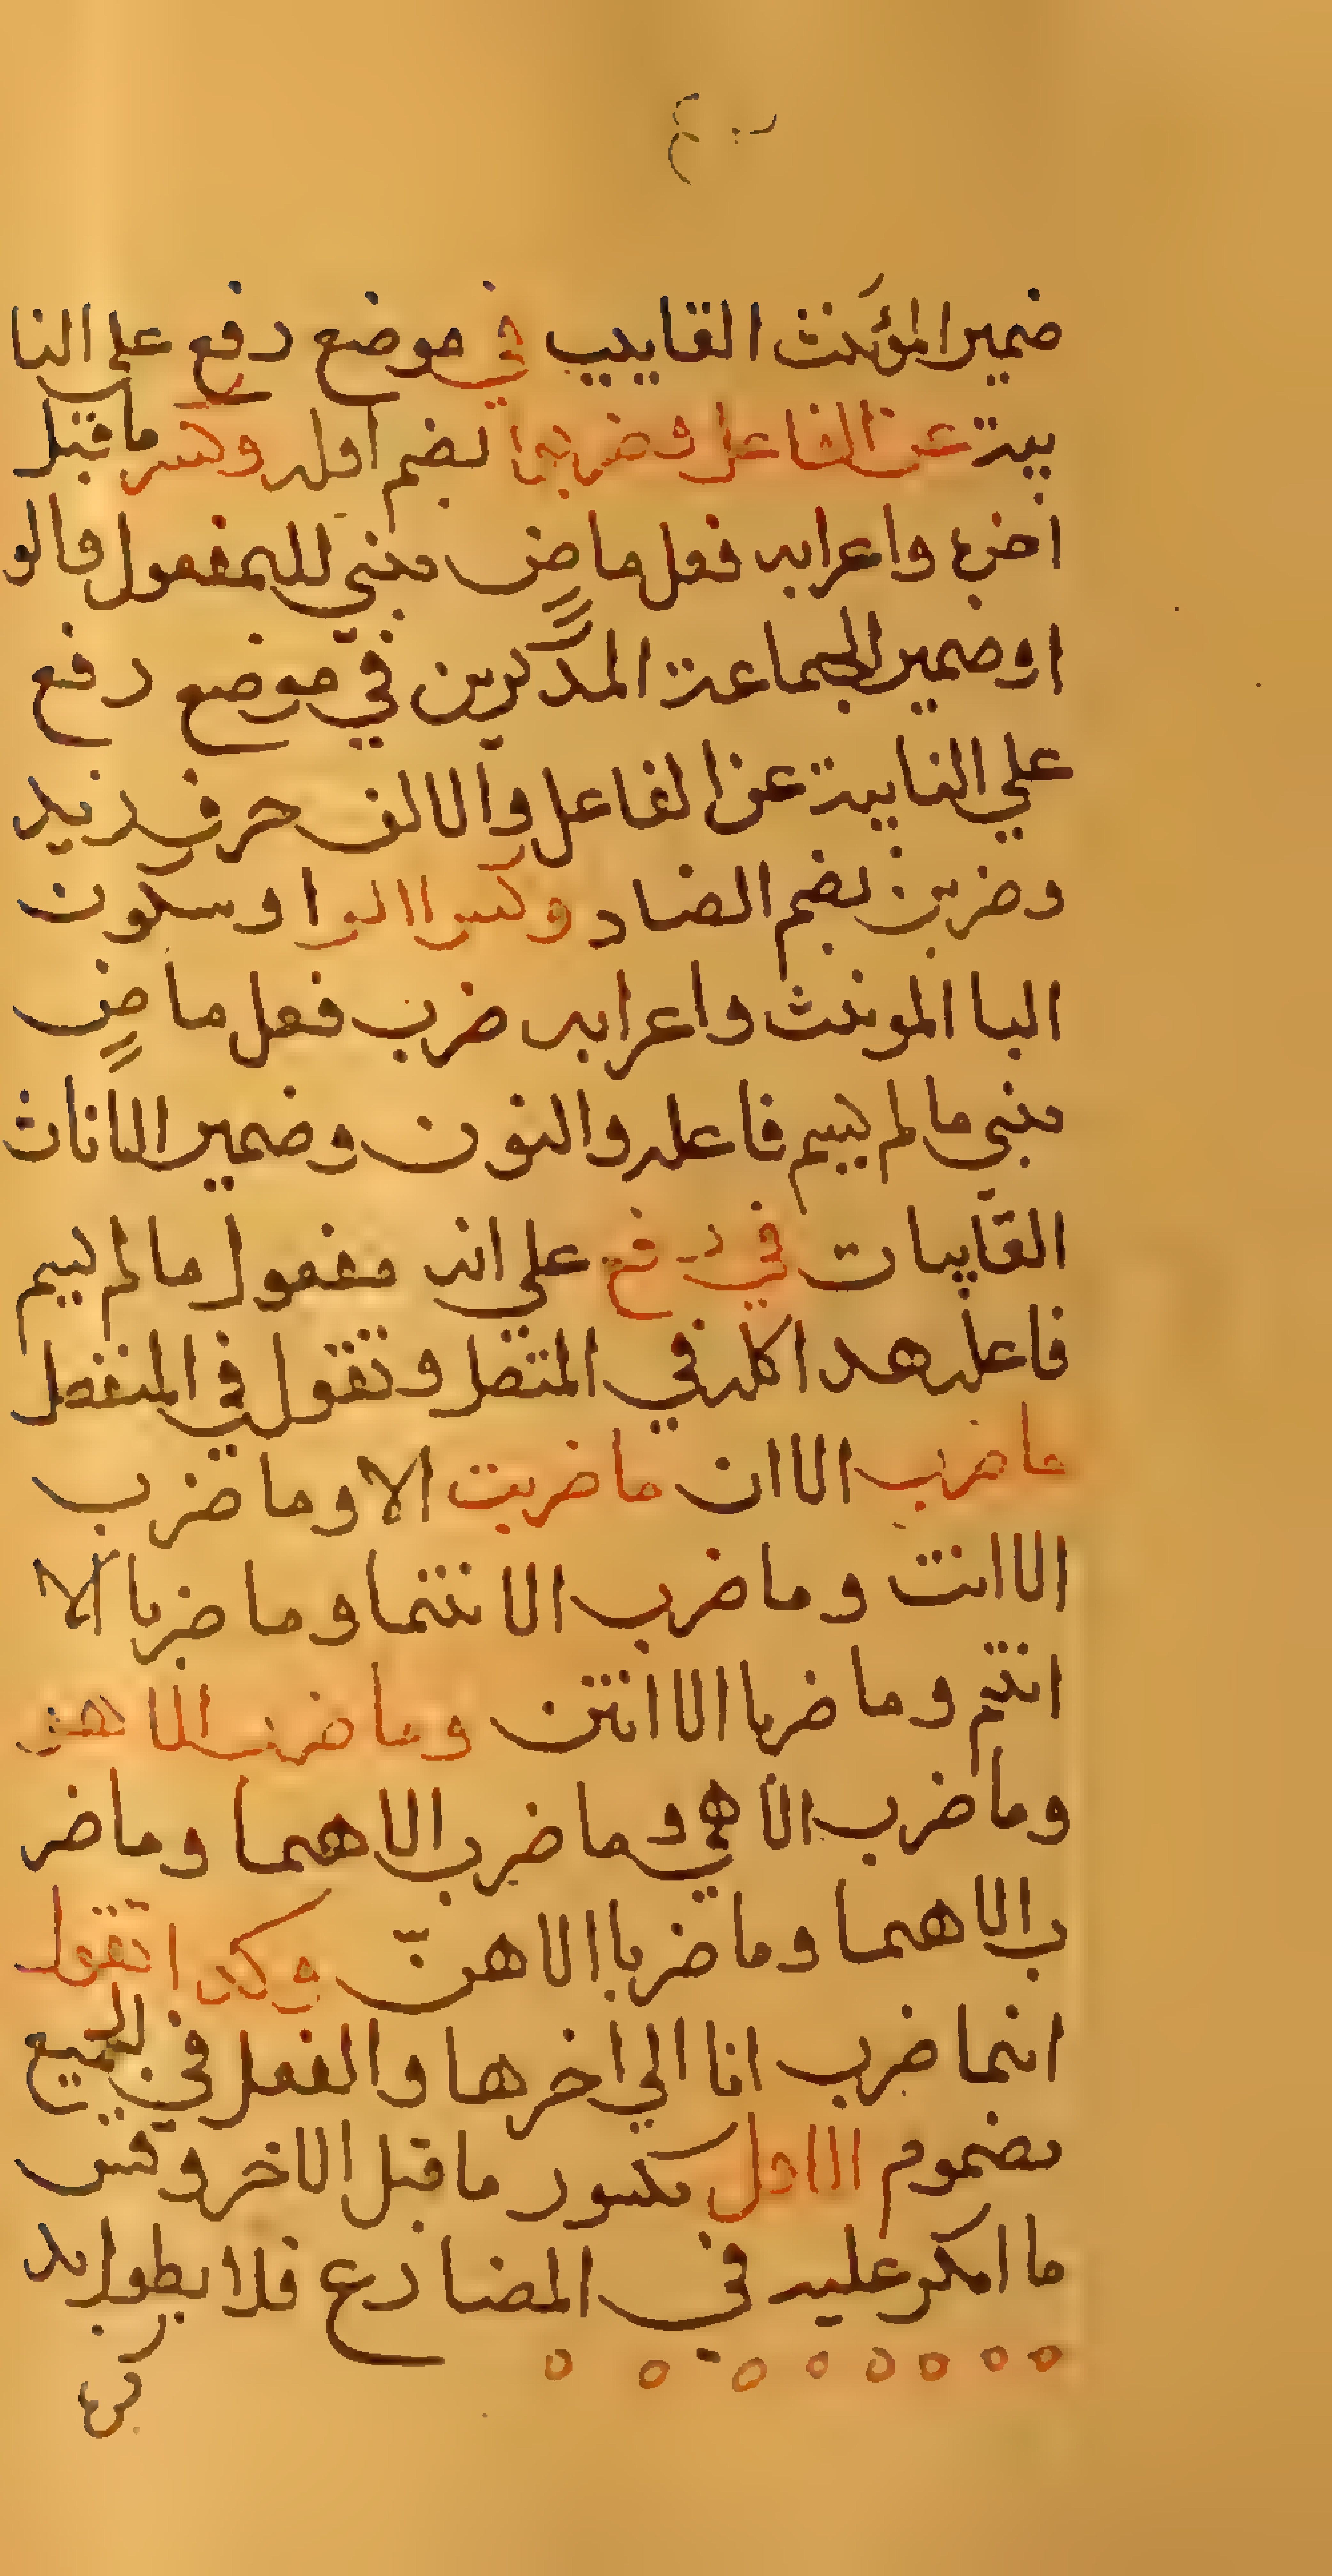 ضمير المؤنث القايب في موضع رفع علي النا
يبة عن الفاعل وضربوا بضم اوله وكسر ما قبل
اخره واعرابه فعل ماضٍ مبني للمفعول والو
او ضمير الجماعة المذكرين في موضع رفع
علي النايبة عن الفاعل والالف حرف زيد
وضربن بضم الضاد وكسر الرا وسكون
البا المونث واعرابه ضرب فعل ماضٍ
مبني ما لم يسم فاعله والنون وضمير الاناث
القايبات في رفع علي انه مفعول ما لم يسم
فاعله هدا كله في المتصل وتقول في المنفصل
ما ضرب الا ان ما ضربت الا وما ضرب
الا انت وما ضرب الا نتما وما ضربا الا
انتم وما ضربا الا انتن وما ضرب الا هو
وما ضرب الا هي وما ضرب الا هما وما ضر
ب الا هما وما ضربا الا هنّ وكدا تقول
انما ضرب انا الي اخرها والفعل في الجميع
مضموم الاول مكسور ما قبل الاخر وقس
ما امكر عليه في المضارع فلا بطول به